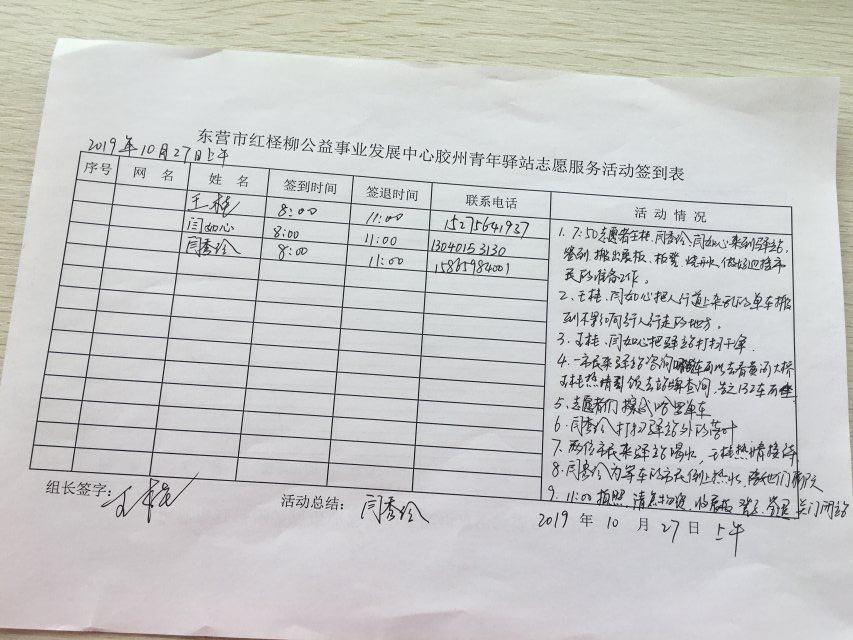 东营市红柽柳公益事业发展中心胶州青年驿站志愿服务活动签到表
2019年10月27日上午
序号 网 名 姓 名 签到时间 签退时间 联系电话 活 动 情 况
王桂 8:00 11:00 15275641937
闫如心 8:00 11:00 13040153130
闫秀玲 8:00 11:00 15865984001
1. 7:50志愿者王桂、闫秀玲、闫如心来到驿站,
签到、搬出展板、板凳、烧开水、做好迎接市
民的准备工作。
2、王桂、闫如心把人行道上乱的单车搬
到不影响行人行走的地方。
3、王桂、闫如心把驿站打扫干净
4、一市民来驿站咨询 车可以去看黄河大桥
王桂热情 去站牌查询, 132车可
5、志愿者们擦拭哈啰单车
6、闫秀玲打扫驿站外的落叶
7、两位市民来驿站喝水,王桂热情接待
8、闫秀玲为等车的市民倒上热水,陪他们聊天
9、11:00拍照、清点物资、收展板、 签退、关门闭站
组长签字: 王桂
活动总结: 闫秀玲
2019 年 10 月 27 日 上午